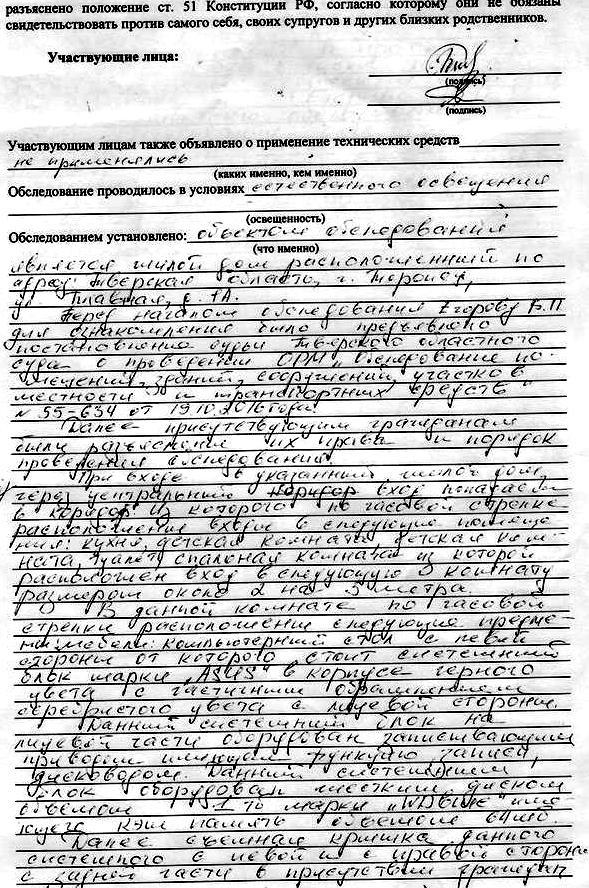 разъяснено положение ст. 51 Конституции РФ, согласно которому они не обязаны
свидетельствовать против самого себя, своих супругов и других близких родственников.
Участвующие лица:
(подпись)
(подпись)
Участвующим лицам также объявлено о применение технических средств
не применялись
(каких именно, кем именно)
Обследование проводилось в условиях естественного освещения
(освещенность)
Обследованием установлено: объектом обследования
(что именно)
является жилой дом расположенный по
адресу: Тверская область, г. Торопец,
ул. Главная, д. 1А.
Перед началом обследования Егорову В.П.
для ознакомления было предъявлено
постановление судьи Тверского областного
суда о проведении ОРМ „Обследование по-
мещений, зданий, сооружений, участков
местности и транспортных средств"
№ 55-634 от 19.10.2016 года.
Далее присутствующим гражданам
были разъяснены их права и порядок
проведения обследования.
При входе в указанный жилой дом
через центральный вход попадаем
в коридор из которого по часовой стрелке
расположены входы в следующие помеще-
ния: кухня, детская комната, детская ком-
ната, туалет, спальная комната из которой
расположен вход в следующую комнату
размером около 2 на 3 метра.
В данной комнате по часовой
стрелки расположены следующие предме-
ты мебели: компьютерный стол с левой
стороны от которого стоит системный
блок марки „ASUS" в корпусе черного
цвета с частичным обрамлением
серебристого цвета с лицевой стороны.
Данный системный блок на
лицевой части оборудован записывающим
приводом имеющим функцию записи,
дисководом. Данный системный
блок оборудован жестким диском
объемом 1 тб марки „WD Blue" име-
ющего кэш память объемом 64мб.
Далее съемная крышка данного
системного с левой и с правой стороны
с задней части в присутствии граждан